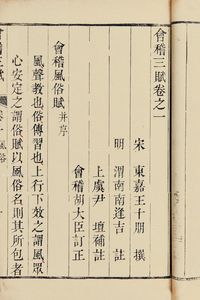 會稽三賦卷之一
宋　東嘉王十朋　撰
明　渭南南逢吉　註
上虞尹　壇補註
會稽胡大臣訂正
會稽風俗賦　并序
風聲教也俗傳習也上行下效之謂風眾
心安定之謂俗賦以風俗名則其所包者
會稽三賦
卷一
風俗